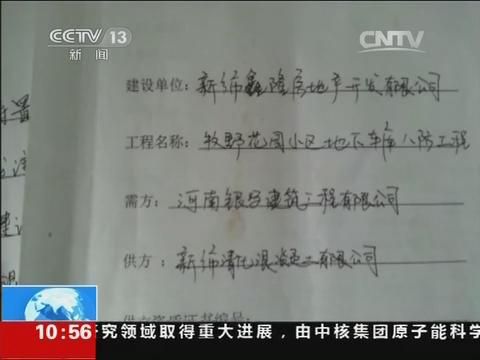 CCTV 13
新闻
CNTV
建设单位:新纬鑫隆房地产开发有限公司
工程名称:牧野花园小区地下车库人防工程
需方:河南银 建筑工程有限公司
供方:新纬 混凝土有限公司
10:56 究领域取得重大进展,由中核集团原子能科学